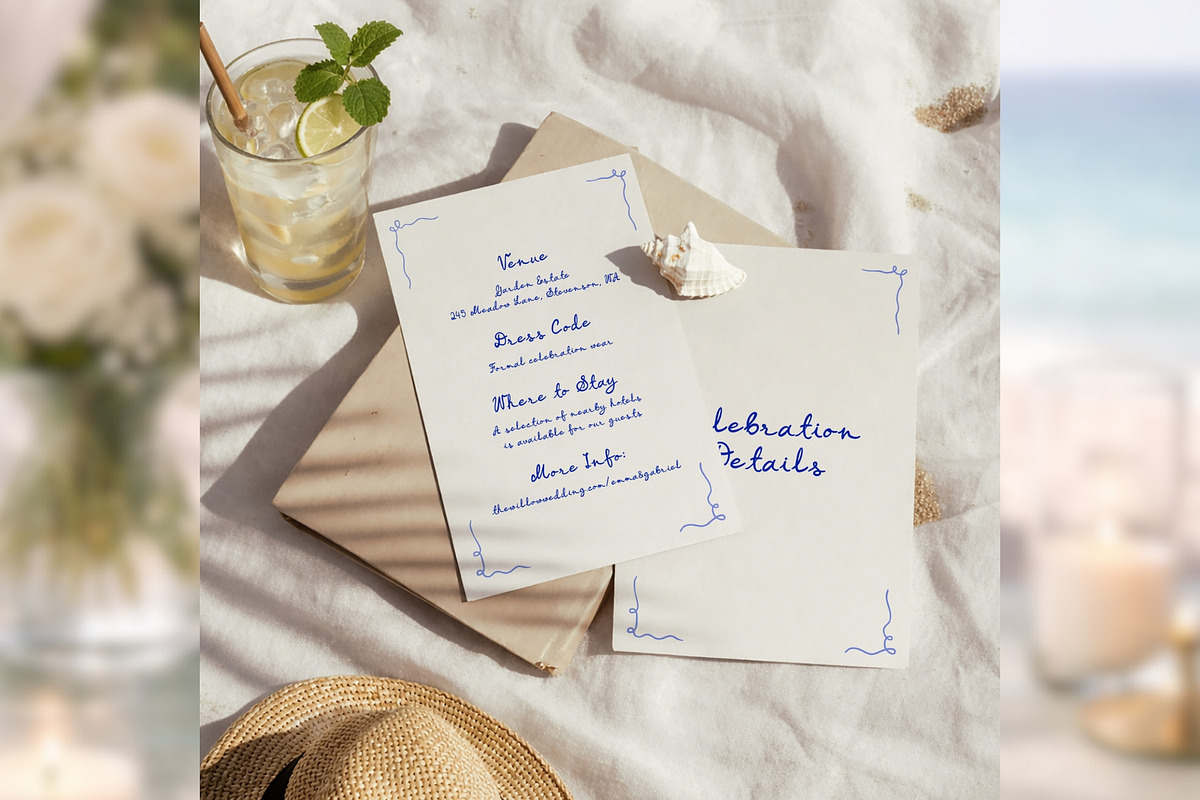 Venue
Garden Estate
245 Meadow Lane, Stevenson, WA
Dress Code
Formal celebration wear
Where to Stay
A selection of nearby hotels
is available for our guests
More Info:
thewillowwedding.com/emma&gabriel
lebration
Details